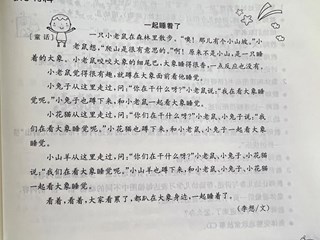 一起睡着了
[童话]
一只小老鼠在森林里散步。“咦！那儿有个小山坡。”小
老鼠想，“爬山是很有意思的。”啊！原来不是小山，是一只睡
着的大象。小老鼠咬咬大象的细尾巴，大象睡得很香，一点反应也没有。
小老鼠觉得很有趣，就蹲在大象面前看他睡觉。
小兔子从这里走过，问：“你在干什么呀？”小老鼠说：“我在看大象睡
觉呢。”小兔子也蹲下来，和小老鼠一起看大象睡觉。
小花猫从这里走过，问：“你们在干什么呀？”小老鼠、小兔子说：“我
们在看大象睡觉呢。”小花猫也蹲下来，和小老鼠、小兔子一起看大象
睡觉。
小山羊从这里走过，问：“你们在干什么呀？”小老鼠、小兔子、小花猫
说：“我们在看大象睡觉呢。”小山羊也蹲下来，和小老鼠、小兔子、小花猫
一起看大象睡觉。
看着，看着，大家看累了，都趴在大象身边，一起睡着了。
(李想/文)